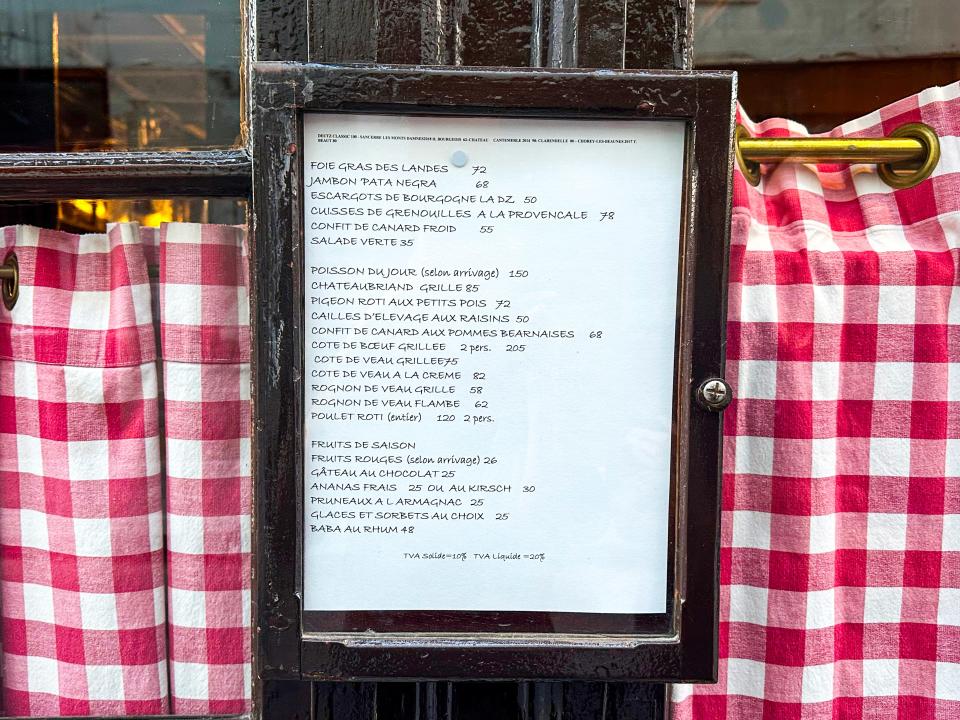 DEUTZ CLASSIC 100 - SANCERRE LES MONTS DAMNES H. BOURGEOIS 62-CHATEAU CANTEMERLE 2014 98- CLARENDELLE 80 - CHOREY-LES-BEAUNES 2017 T.
BEAUT 80
FOIE GRAS DES LANDES 72
JAMBON 'PATA NEGRA 68
ESCARGOTS DE BOURGOGNE LA DZ 50
CUISSES DE GRENOUILLES A LA PROVENCALE 78
CONFIT DE CANARD FROID 55
SALADE VERTE 35
POISSON DU JOUR (selon arrivage) 150
CHATEAUBRIAND GRILLE 85
PIGEON ROTI AUX PETITS POIS 72
CAILLES D'ELEVAGE AUX RAISINS 50
CONFIT DE CANARD AUX POMMES BEARNAISES 68
COTE DE BŒUF GRILLEE 2 pers. 205
COTE DE VEAU GRILLEE75
COTE DE VEAU A LA CREME 82
ROGNON DE VEAU GRILLE 58
ROGNON DE VEAU FLAMBE 62
POULET ROTI (entier) 120 2 pers.
FRUITS DE SAISON
FRUITS ROUGES (selon arrivage) 26
GÂTEAU AU CHOCOLAT 25
ANANAS FRAIS 25 OU AU KIRSCH 30
PRUNEAUX A L ARMAGNAC 25
GLACES ET SORBETS AU CHOIX 25
BABA AU RHUM 48
TVA Solide=10% TVA Liquide =20%